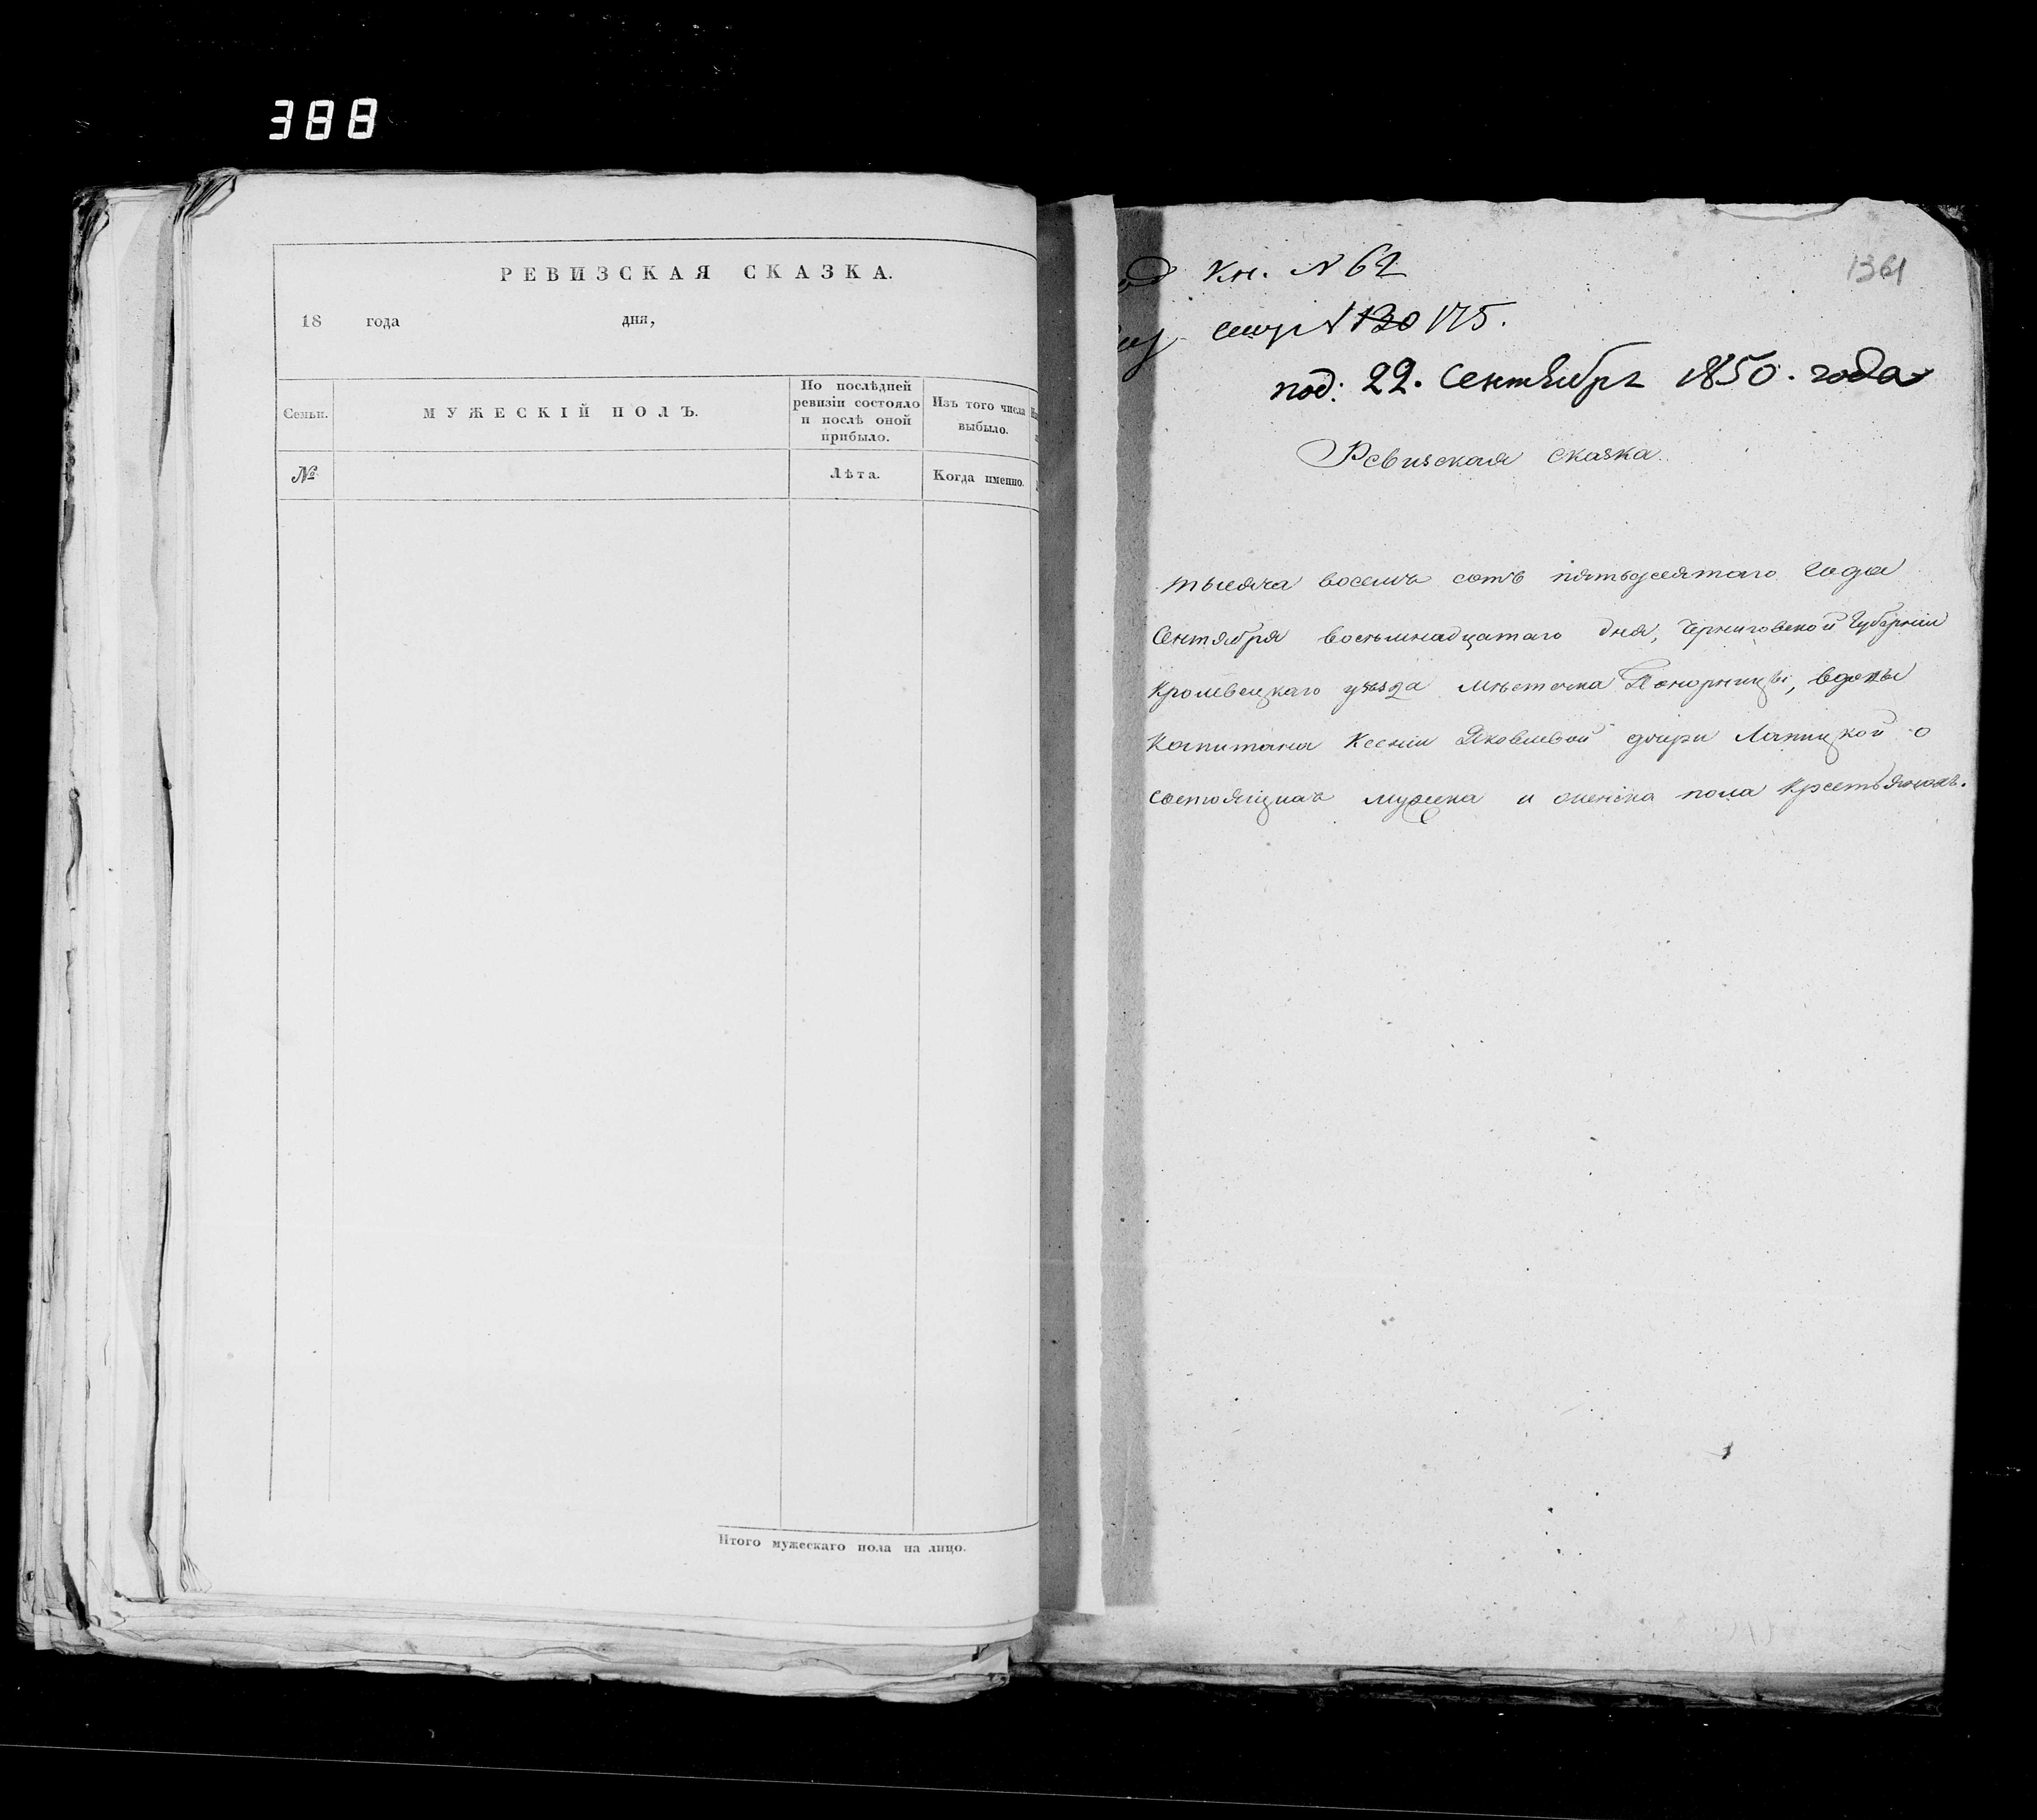 388
РЕВИЗСКАЯ СКАЗКА.
18 года дня,
Семьи.
МУЖЕСКІЙ ПОЛЪ.
По послѣдней
ревизіи состояло
и послѣ оной
прибыло.
Изъ того числа
выбыло.
№
Лѣта.
Когда именно.
Итого мужескаго пола на лицо.
1361
Кн. N 62
N 130 175.
под: 22. Сентября 1850. года
Ревизская сказка.
тысяча восемь сотъ пятьдесятаго года
Сентября восемьнадцатаго дня, Черниговской Губерніи
Кролевецкаго уѣзда мѣстечка Понорницы, вдовы
Капитана Ксеніи Яковлевой дочери Лапицкой о
состоящихъ мужеска и женска пола крестьянахъ.